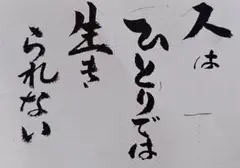 人は
ひとりでは
生き
られない